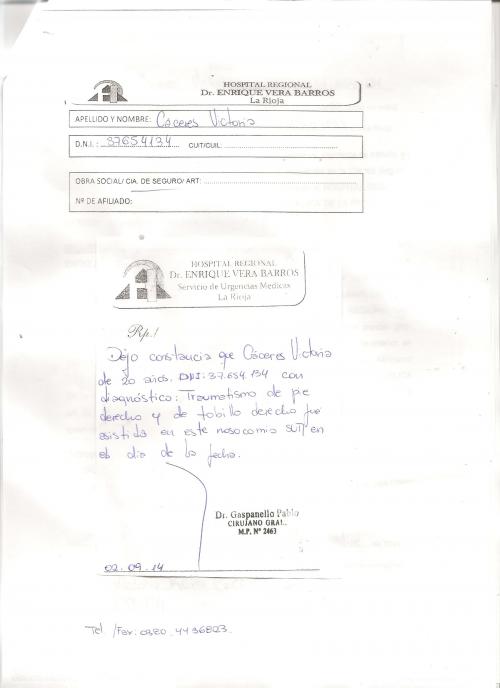 HOSPITAL REGIONAL
Dr. ENRIQUE VERA BARROS
La Rioja
APELLIDO Y NOMBRE: Cáceres Victoria
D.N.I.: 37654134 CUIT/CUIL:
OBRA SOCIAL/ CIA. DE SEGURO/ ART:
Nº DE AFILIADO:
HOSPITAL REGIONAL
Dr. ENRIQUE VERA BARROS
Servicio de Urgencias Medicas
La Rioja
Rp./
Dejo constancia que Cáceres Victoria
de 20 años. DNI: 37.654.134 con
diagnóstico: Traumatismo de pie
derecho y de tobillo derecho fue
asistida en este nosocomio en
el día de la fecha.
Dr. Gaspanello Pablo
CIRUJANO GRAL.
M.P. Nº 2463
02.09.14
Tel./Fax: 0380.4436823.